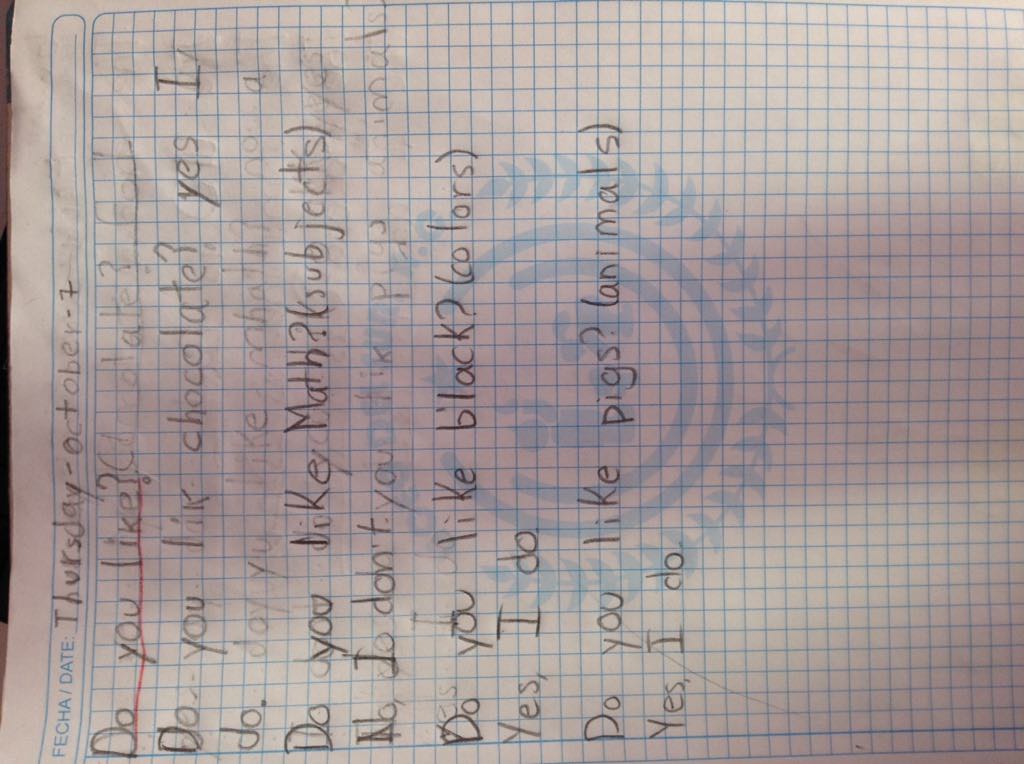 FECHA / DATE: Thursday-october-7
Do you like?
Do you lik chocolate? yes I
do.
Do you like Math? (subjects)
No, I don't.
Do you like black? (colors)
Yes, I do
Do you like pigs? (animals)
Yes, I do